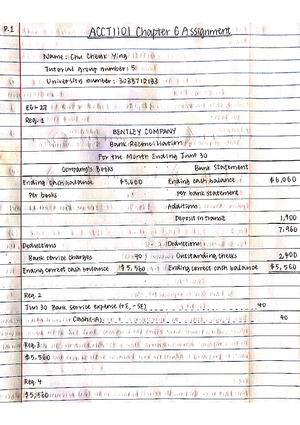 P.1
ACCT1101 Chapter 6 Assignment
Name: Chu Cheuk Ying
Tutorial group number: 5
University number: 3035712133
E6-27
Req. 1
BENTLEY COMPANY
Bank Reconciliation
For the Month Ending June 30
Company's Books Bank Statement
Ending cash balance $5,600 Ending cash balance $6,060
per books per bank statement
Additions:
Deposit in transit 1,900
7,960
Deductions Deductions:
Bank service charges 40 Outstanding checks 2,400
Ending correct cash balance $5,560 Ending correct cash balance $5,560
Req. 2
Jun 30 Bank service expense (+E, -SE) 40
Cash (-A) 40
Req. 3
$5,560
Req. 4
$5,560